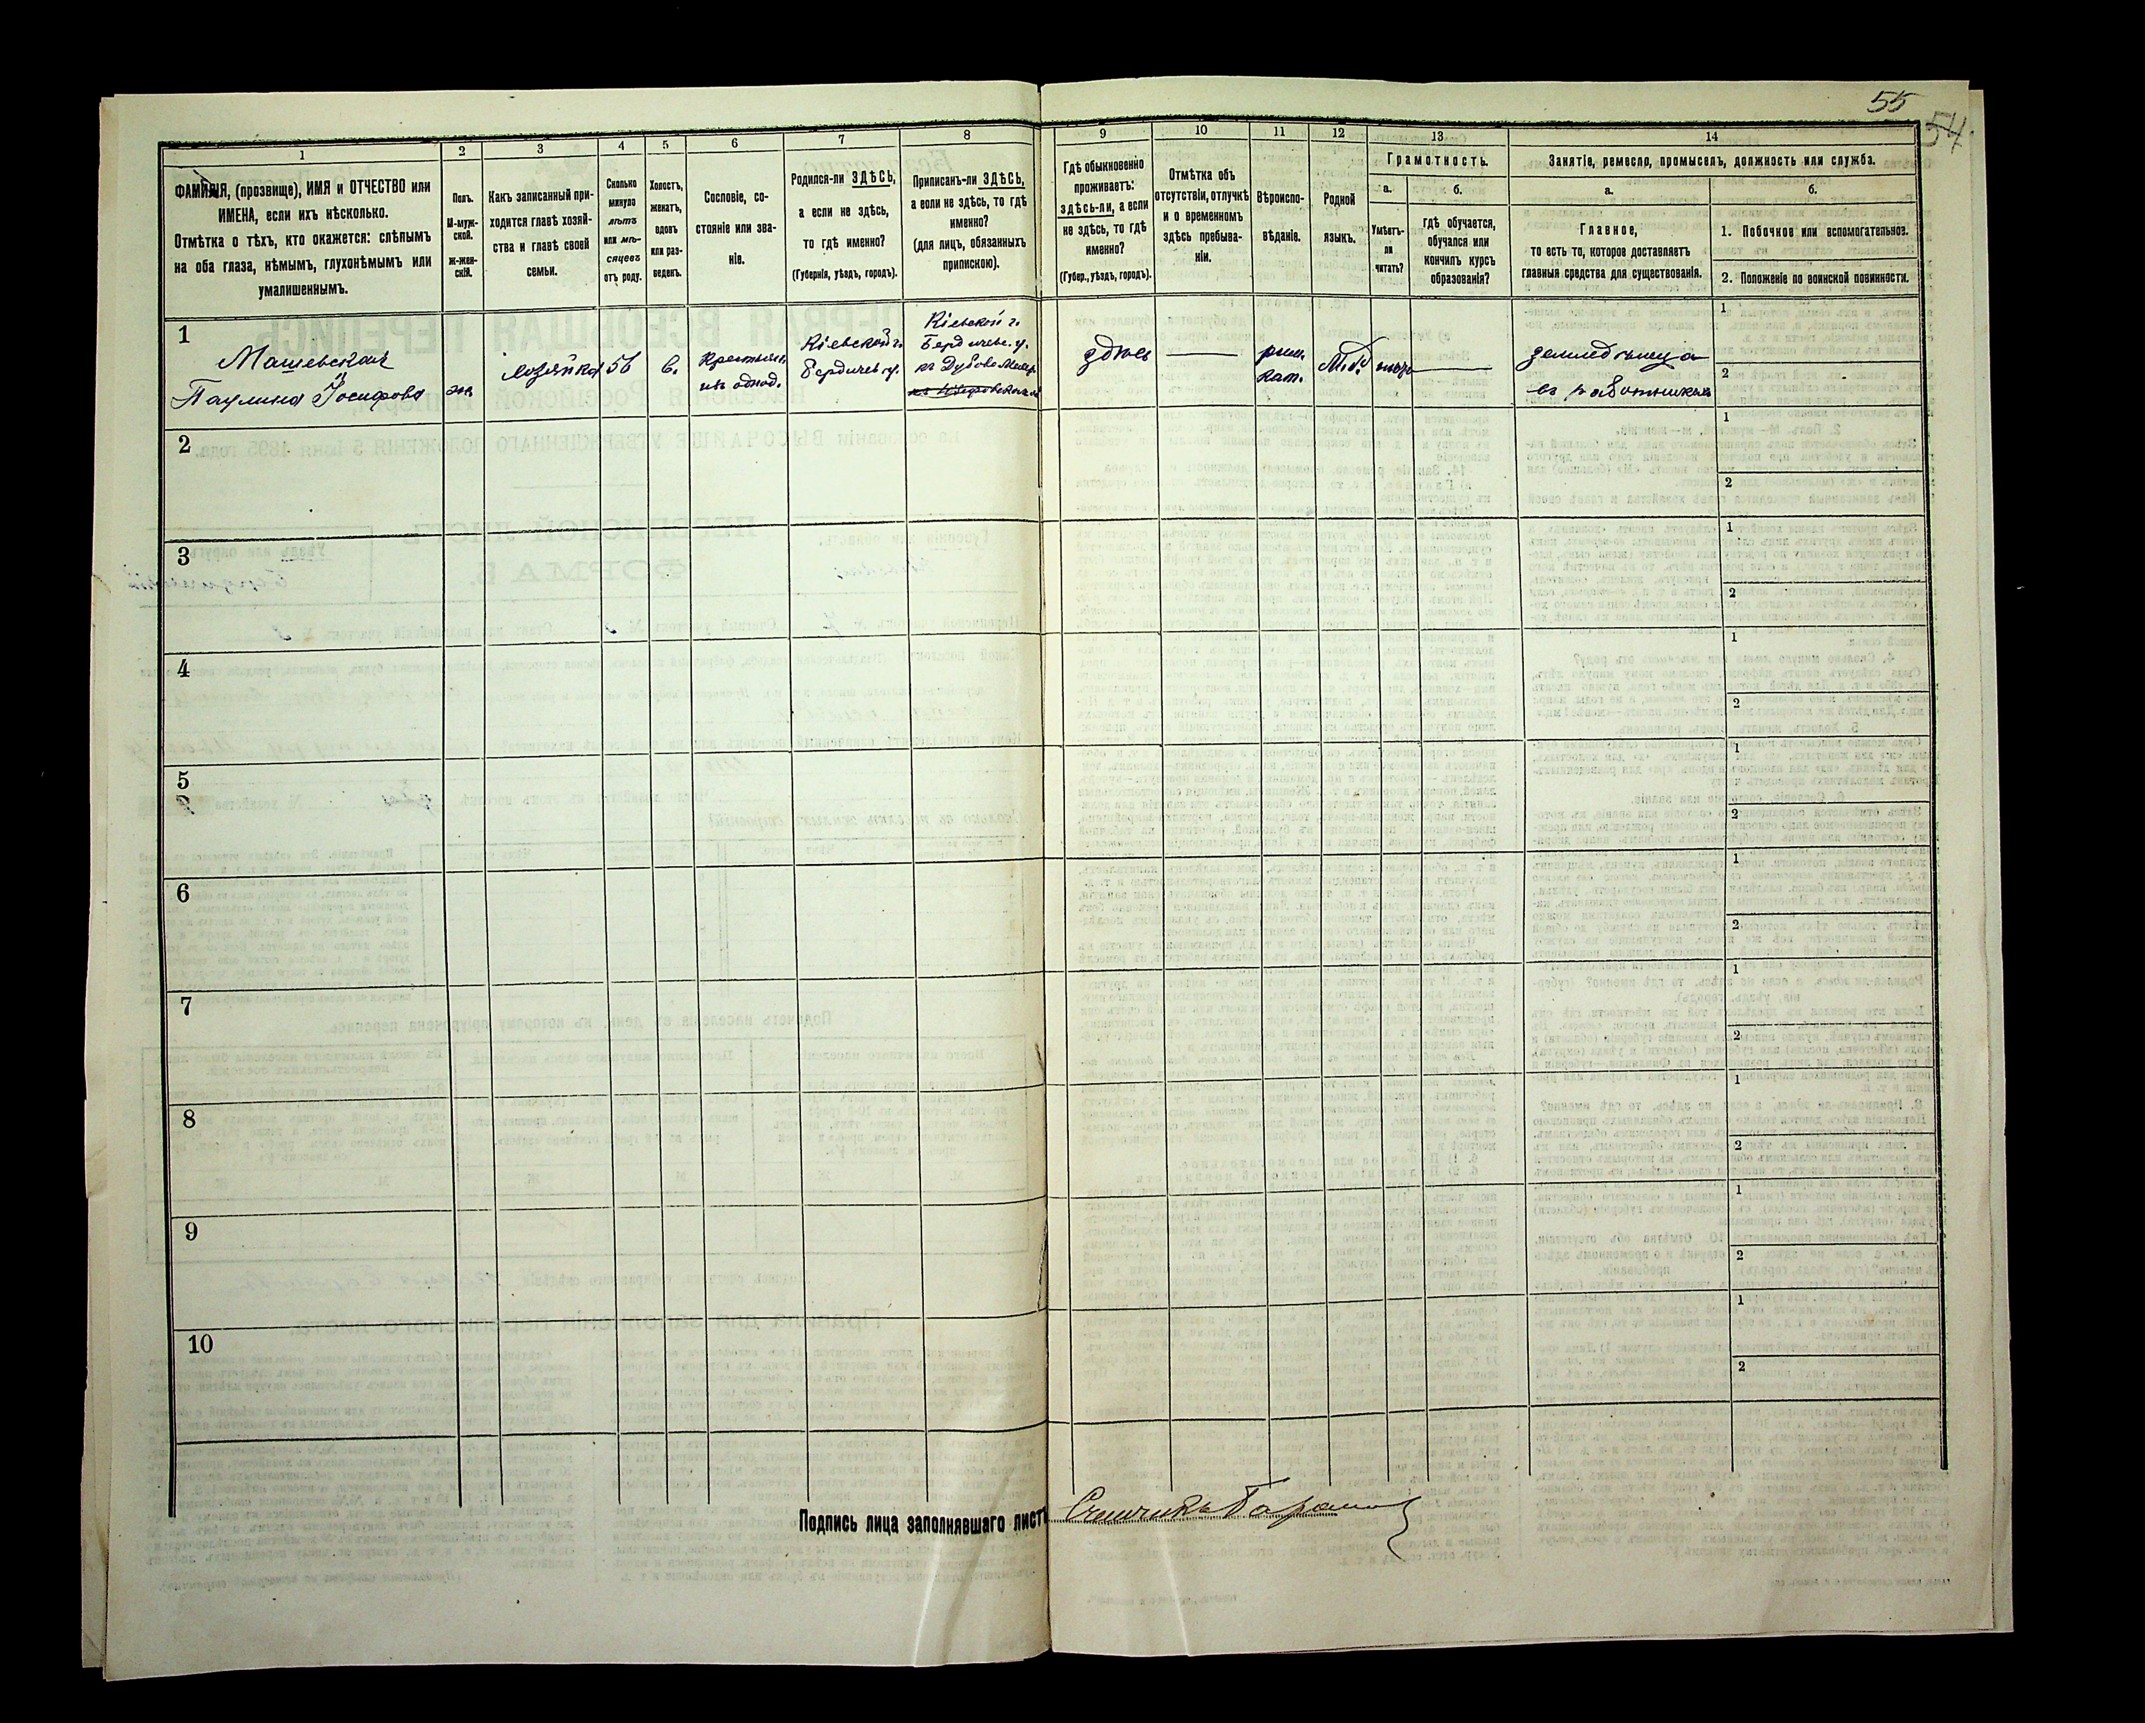 55
54.
1
ФАМИЛІЯ, (прозвище), ИМЯ и ОТЧЕСТВО или
ИМЕНА, если ихъ нѣсколько.
Отмѣтка о тѣхъ, кто окажется: слѣпымъ
на оба глаза, нѣмымъ, глухонѣмымъ или
умалишеннымъ.
2
Полъ.
М-муж-
ской.
Ж-жен-
скій.
3
Какъ записанный при-
ходится главѣ хозяй-
ства и главѣ своей
семьи.
4
Сколько
минуло
лѣтъ
или мѣ-
сяцевъ
отъ роду.
5
Холостъ,
женатъ,
вдовъ
или раз-
веденъ.
6
Сословіе, со-
стояніе или зва-
ніе.
7
Родился-ли ЗДѢСЬ,
а если не здѣсь,
то гдѣ именно?
(Губернія, уѣздъ, городъ).
8
Приписанъ-ли ЗДѢСЬ,
а если не здѣсь, то гдѣ
именно?
(для лицъ, обязанныхъ
припискою).
9
Гдѣ обыкновенно
проживаетъ:
здѣсь-ли, а если
не здѣсь, то гдѣ
именно?
(Губер., уѣздъ, городъ).
10
Отмѣтка объ
отсутствіи, отлучкѣ
и о временномъ
здѣсь пребыва-
ніи.
11
Вѣроиспо-
вѣданіе.
12
Родной
языкъ.
13
Грамотность.
а.
Умѣетъ-
ли
читать?
б.
гдѣ обучается,
обучался или
кончилъ курсъ
образованія?
14
Занятіе, ремесло, промыселъ, должность или служба.
а.
Главное,
то есть то, которое доставляетъ
главныя средства для существованія.
б.
1. Побочное или вспомогательное.
2. Положеніе по воинской повинности.
1
Машевская
Паулина Іосифова
жа
хозяйка
56
в.
крестьян.
из однод.
Кіевской г.
Бердичев. у.
Кіевской г.
Бердичев. у.
здѣсь
рим.
кат.
земледѣлица
съ работникомъ
1
2
2
1
2
3
1
2
4
1
2
5
1
2
6
1
2
7
1
2
8
1
2
9
1
2
10
1
2
Подпись лица заполнявшаго листъ
Счетчикъ